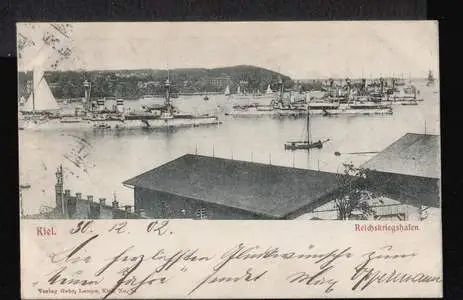 Kiel. 30.12.02. Reichskriegshafen
Die herzlichsten Glückwünsche zum
"neuen Jahre" sendet Max
Verlag Gebr. Lempe, Kiel. No.